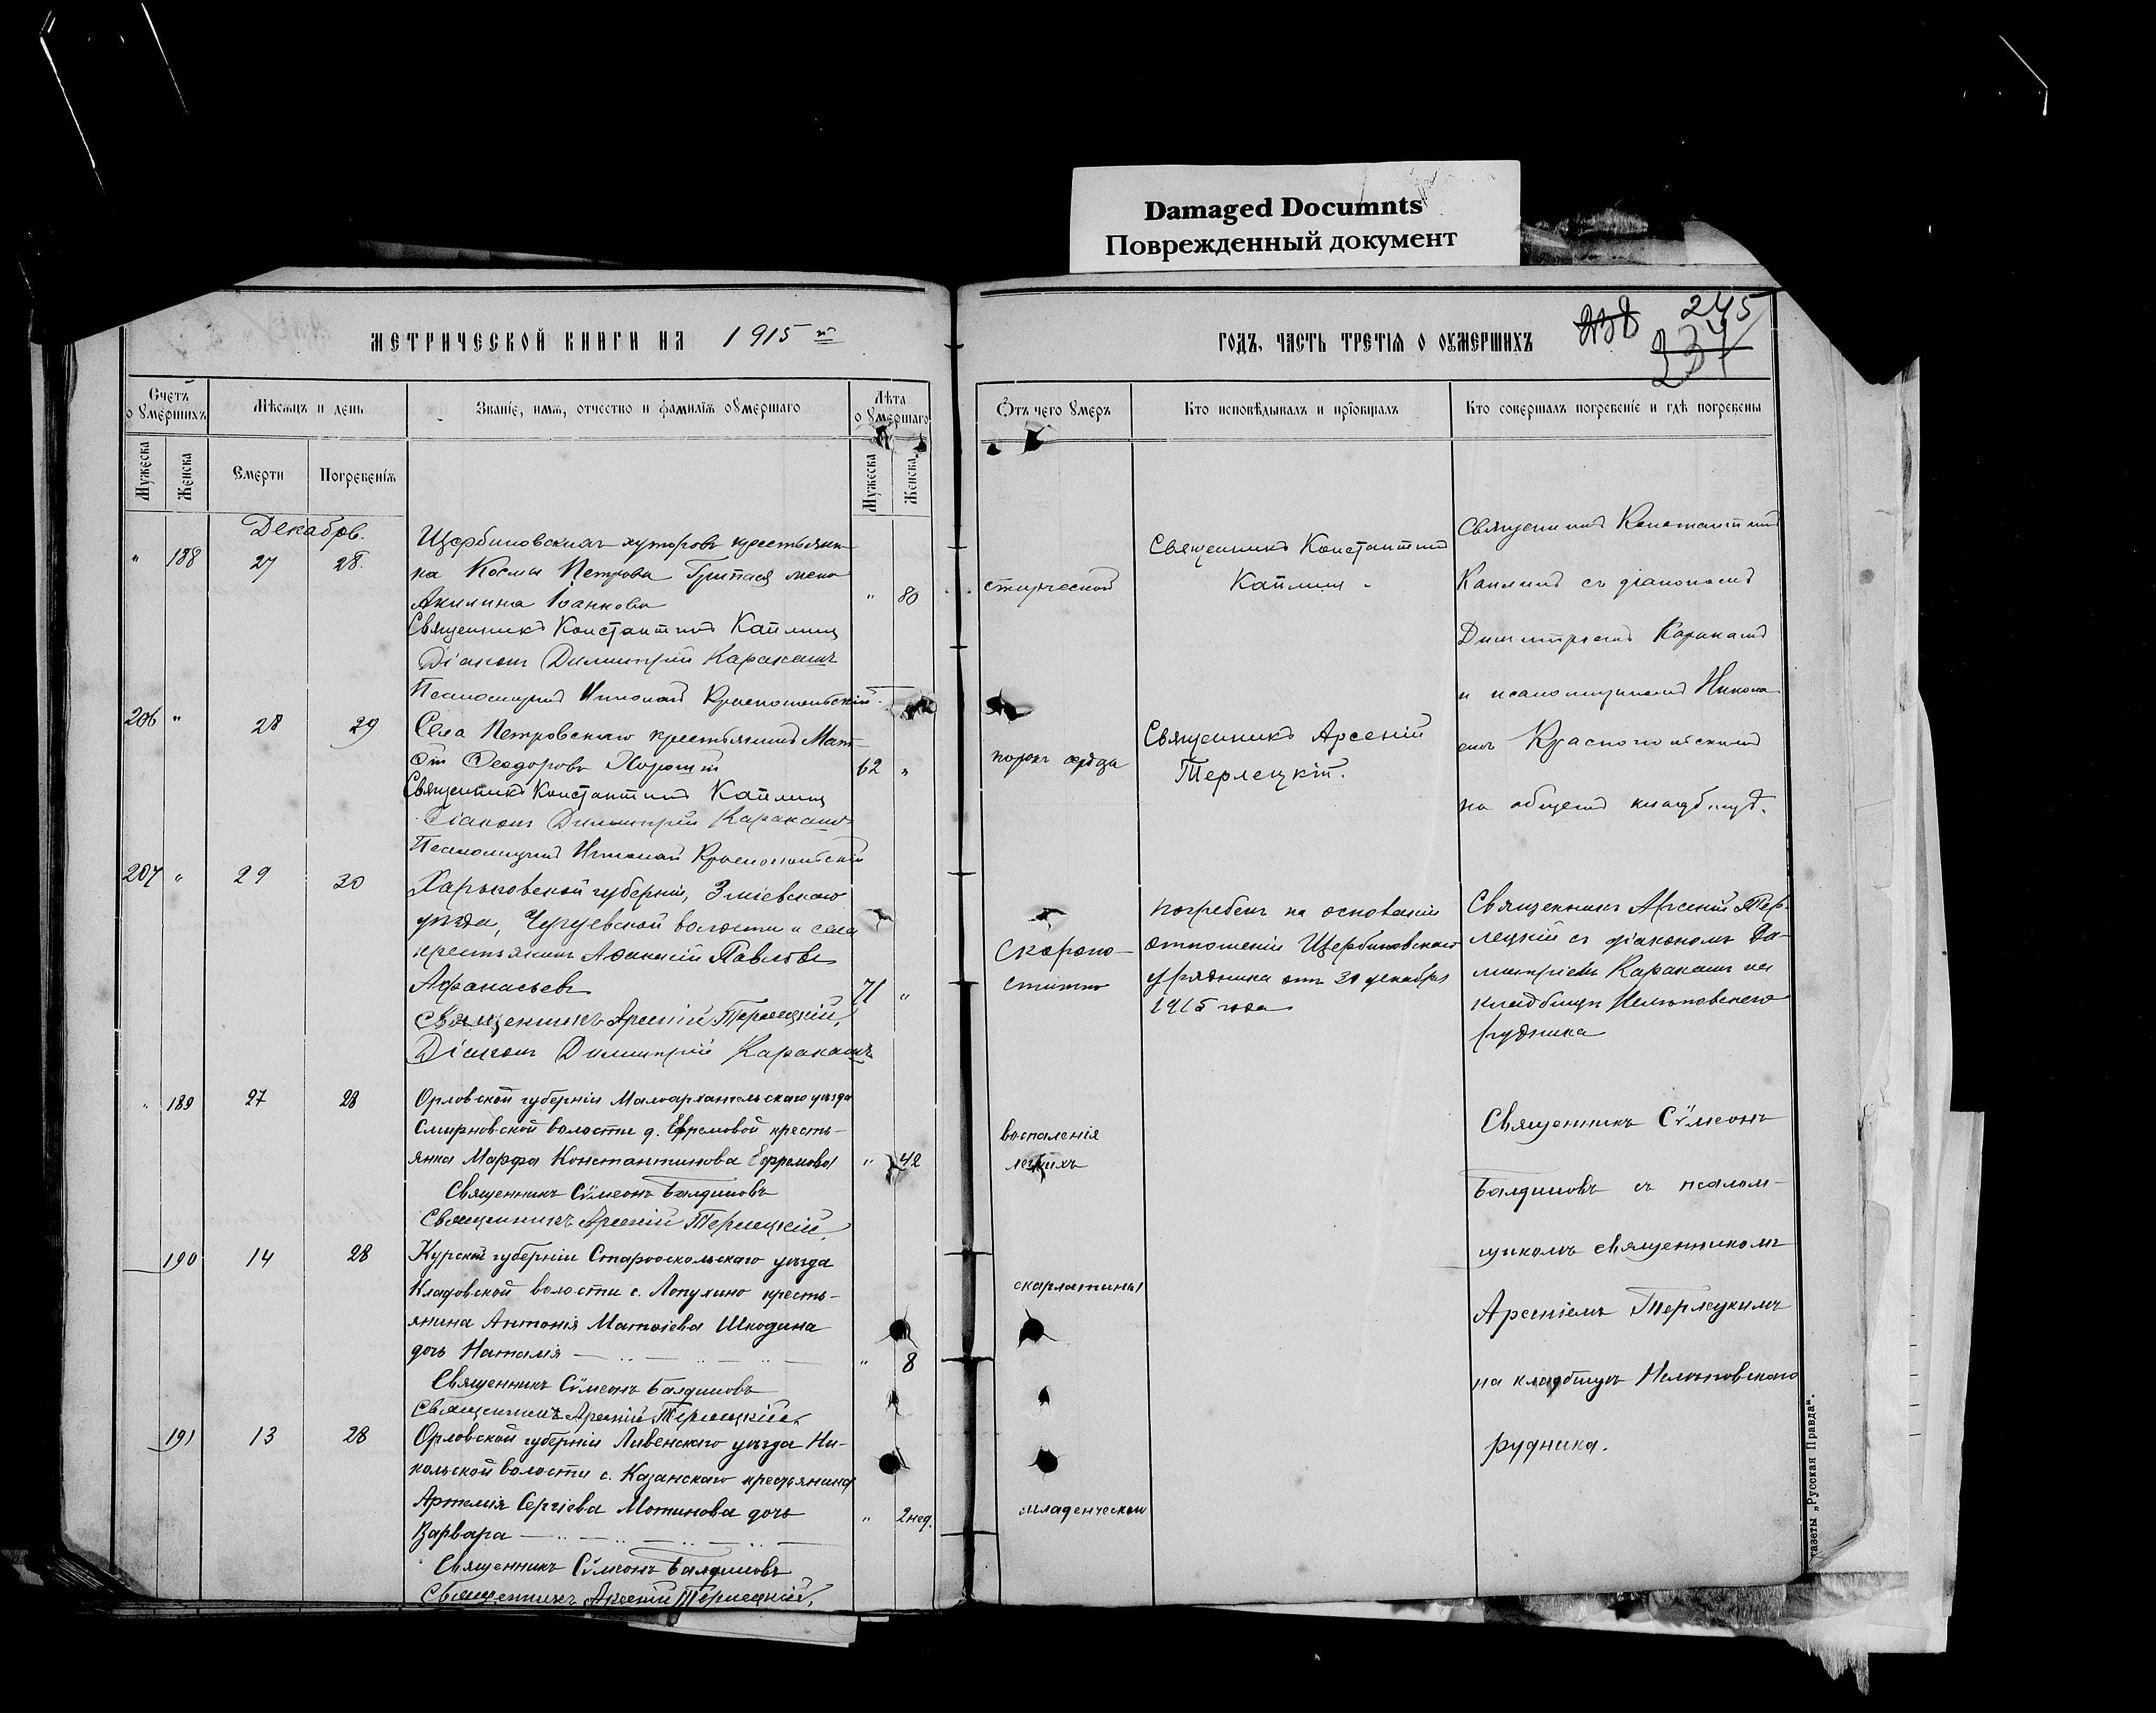 Damaged Documnts
Поврежденный документ
МЕТРИЧЕСКОЙ КНИГИ НА 1915 й
Счетъ оумершихъ
Мѣсяцъ и день
Званіе, имя, отчество и фамилія оумершаго
Лѣта оумершаго
Мужеска
Женска
Смерти
Погребенія
Мужеска
Женска
Декабрь.
" 188 27 28.
Щербиновскихъ хуторовъ крестьяни-
на Космы Петрова жена
Акилина " 80
Священникъ Константинъ
Діаконъ Димитрій Каракашъ
Псаломщикъ Николай
206 " 28 29
Села Петровскаго крестьянинъ Мат-
ѳій Ѳеодоровъ 62 "
Священникъ Константинъ
Діаконъ Димитрій Каракашъ
Псаломщикъ Николай
207 " 29 30
Харьковской губерніи, Зміевскаго
уѣзда, Чугуевской волости и села
крестьянинъ Аѳанасій Павловъ
Афанасьевъ 71 "
Священникъ Арсеній Терлецкій,
Діаконъ Димитрій Каракашъ
" 189 27 28
Орловской губерніи Малоархангельскаго уѣзда
Смирновской волости д. Ефремовой кресть-
янка Марфа Константинова Ефремова " 42
Священникъ Сѵмеонъ Балдиновъ
Священникъ Арсеній Терлецкій,
190 14 28
Курской губерніи Старооскольскаго уѣзда
Кладовской волости с. Лопухино кресть-
янина Антонія Матѳіева Шкодина
дочь Наталія " 8
Священникъ Сѵмеонъ Балдиновъ
Священникъ Арсеній Терлецкій,
191 13 28
Орловской губерніи Ливенскаго уѣзда Ни-
кольской волости с. Казанскаго крестьянина
Артемія Сергіева Мотинова дочь
Варвара " 2 нед.
Священникъ Сѵмеонъ Балдиновъ
Священникъ Арсеній Терлецкій,
ГОДЪ, ЧАСТЬ ТРЕТІЯ О ОУМЕРШИХЪ
238 245
237
Отъ чего умеръ
Кто исповѣдывалъ и пріобщалъ
Кто совершалъ погребеніе и гдѣ погребены
старческой
Священникъ Константинъ
Священникъ Константинъ
съ діакономъ
Димитріемъ Каракашъ
и псаломщикомъ Никола-
емъ
на общемъ кладбищѣ.
порокъ сердца
Священникъ Арсеній
Терлецкій.
Скоропо-
стижно
погребенъ на основаніи
отношенія Щербиновскаго
урядника отъ 30 декабря
1915 года
Священникъ Арсеній Тер-
лецкій съ діакономъ Ди-
митріемъ Каракашъ на
кладбищѣ Нелѣповскаго
рудника
воспаленія
легкихъ
скарлатины
младенческой
Священникъ Сѵмеонъ
Балдиновъ съ псалом-
щикомъ священникомъ
Арсеніемъ Терлецкимъ
на кладбищѣ Нелѣповскаго
рудника.
газеты „Русская Правда".